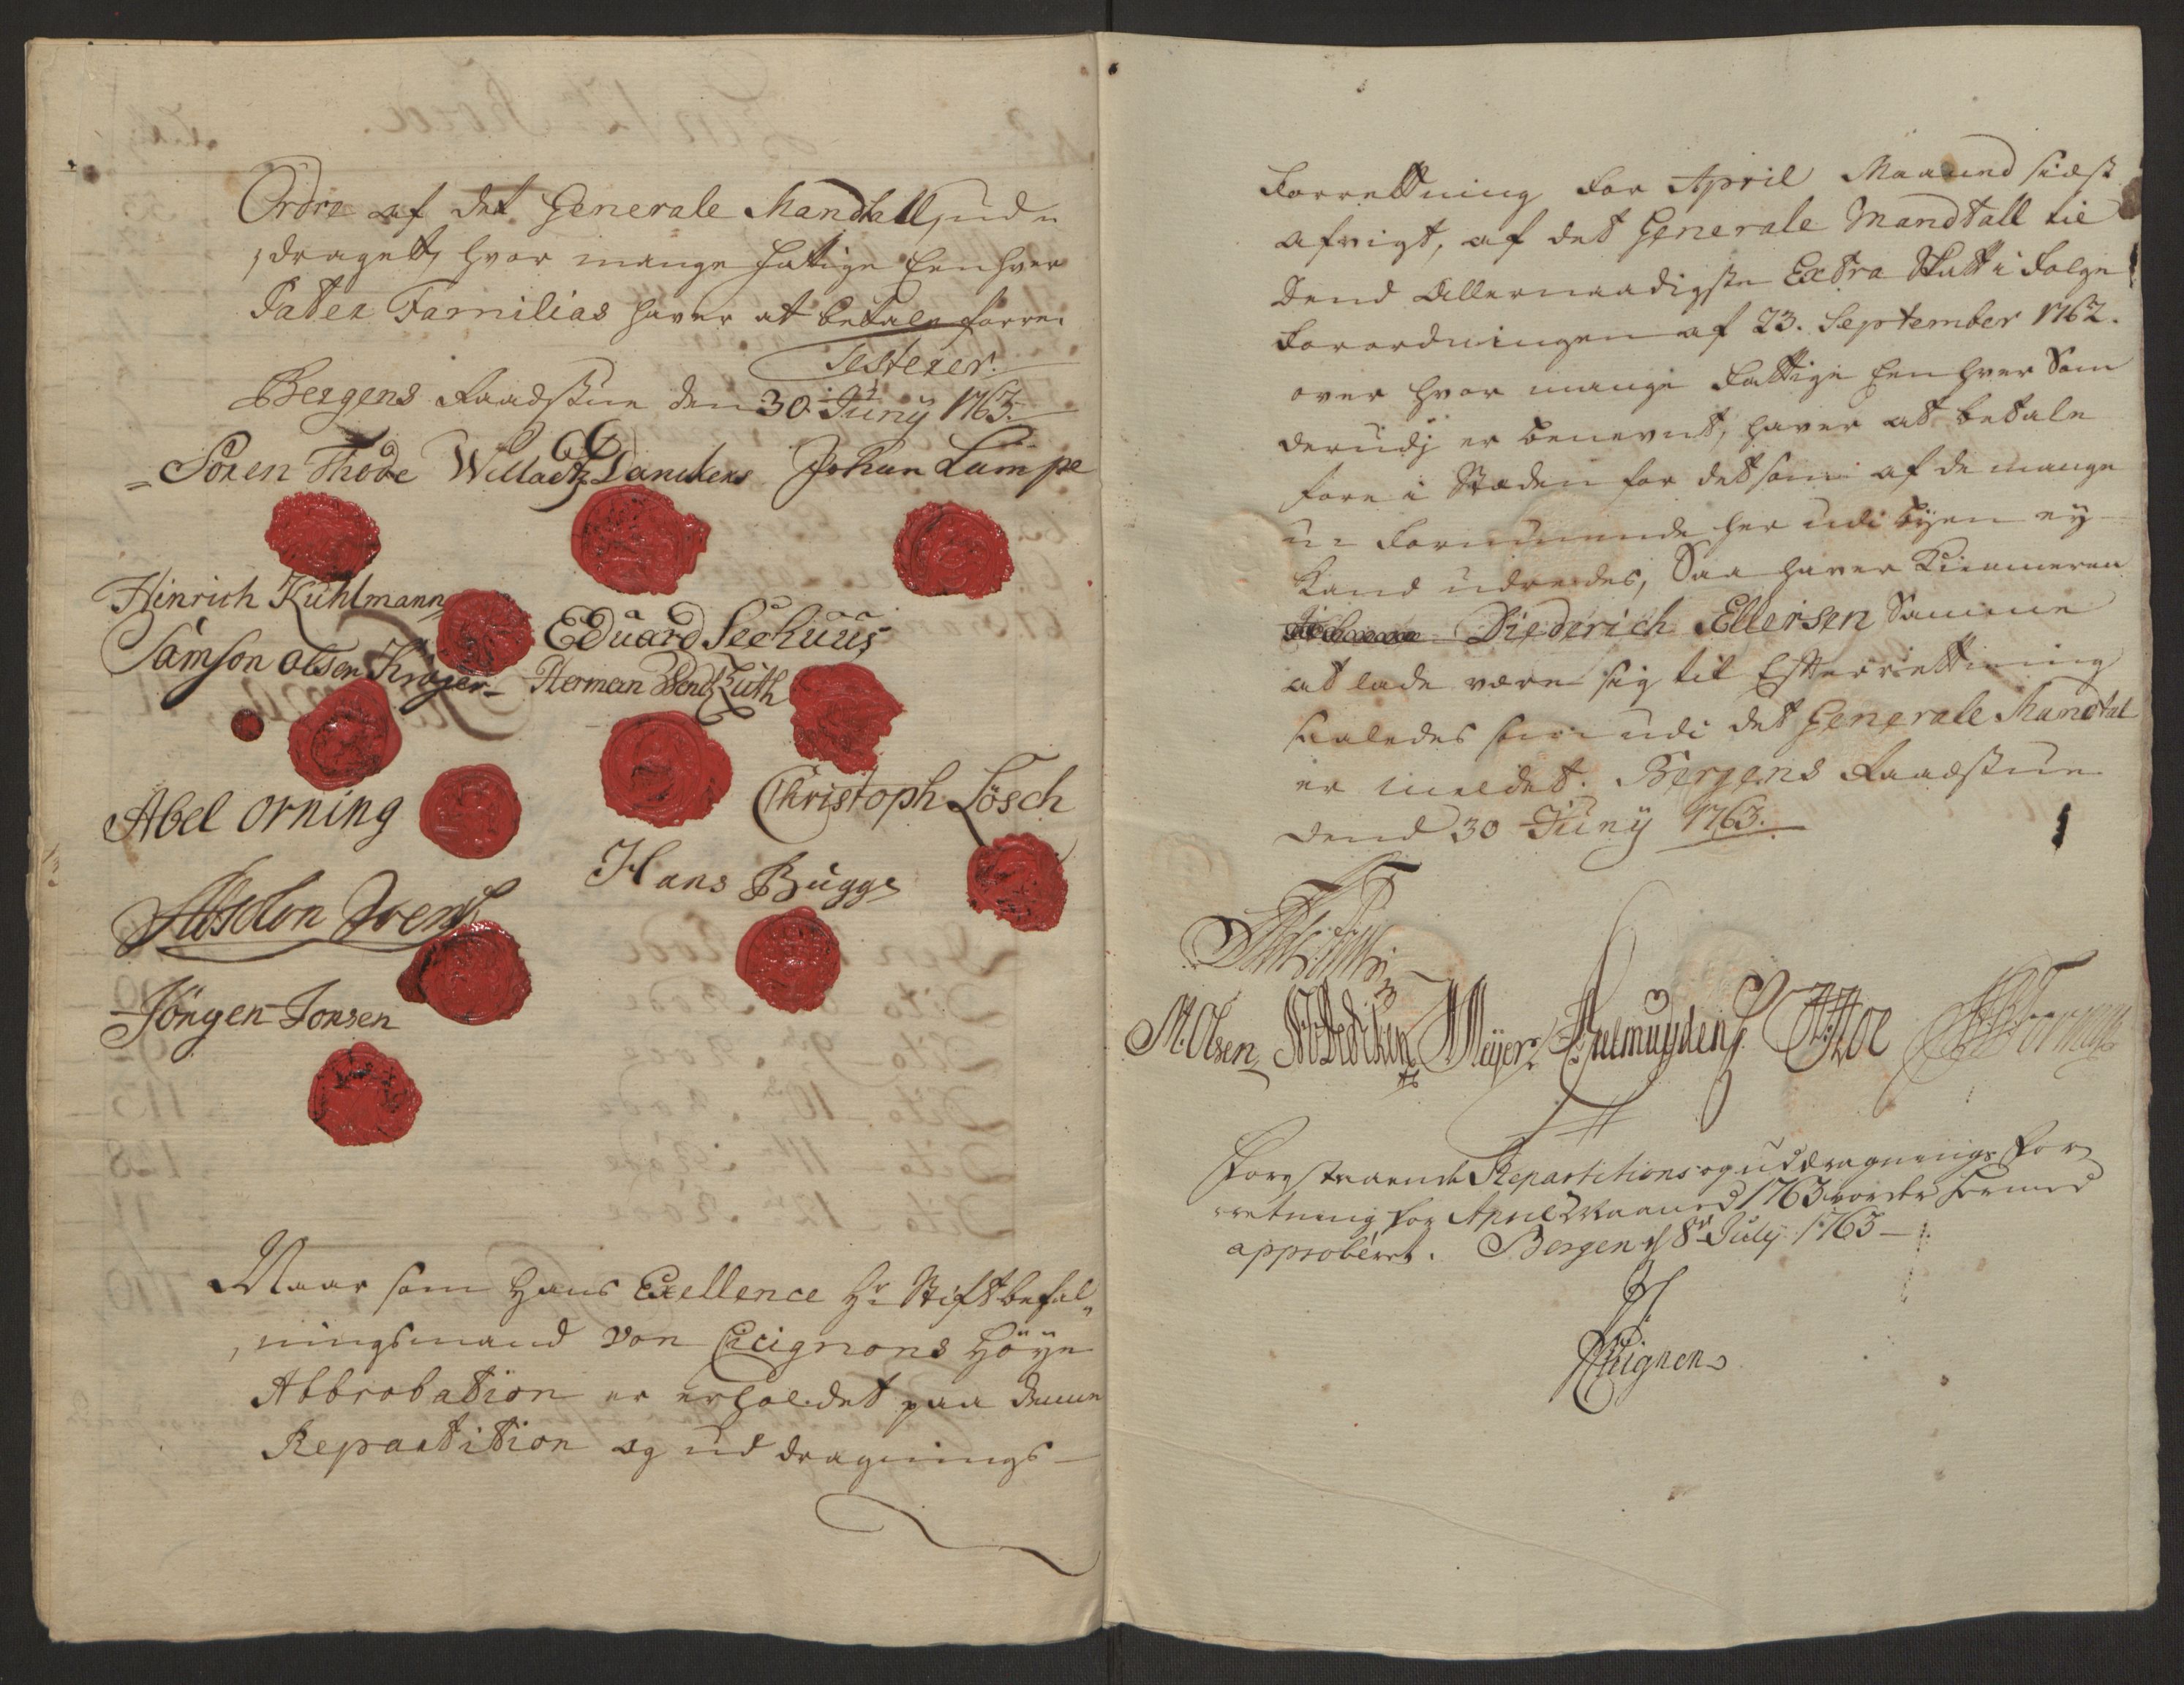 Ordre af det Generale Mandtall ud¬
draget, hvor mange fattige Eenhver
Pater Familias haver at betale forre.
Testerer.
Bergens Raadstue den 30. Juny 1763.
Søren Thode Willadtz Danckers Johan Lampe
Hinrich Kühlmann
Eduard Seehuus
Samson Olsen Krøyer Herman Bendt Züth
Abel Orning
Christoph Lösch
Hans Bugge
Absolon Svens
Jörgen Jonsen
Naar som hans Exellence Hr Stiftbefal„
„ningsmand von Cicignons Höye
Abbrobation er erholdet paa denne
Repartition og uddragnings-
Forrettning for April Maaned sidst
afvigt, af det Generale Mandtall til
dend Allernaadigste Extra Skatt i Følge
Forordningen af 23. September 1762.
over hvor mange Fattige Eenhver Som
derudj er benevnt, haver at betale
fore i Stæden for det som af de mange
u- Formuende her udi Byen ey
kand udredes, Saa haver Kiemneren
Diederich Ellersen Samme
at lade være sig til Efterrettning
saaledes som udi det Generale Mandtal
er meldet. Bergens Raadstue
dend 30 Juny 1763.
M. Olsen Meyer Gelmuyden
Forestaaende Repartitions og uddragnings For
retning for April Maaned 1763 vorder hermed
approberet. Bergen d 8de July 1763
Cicignon